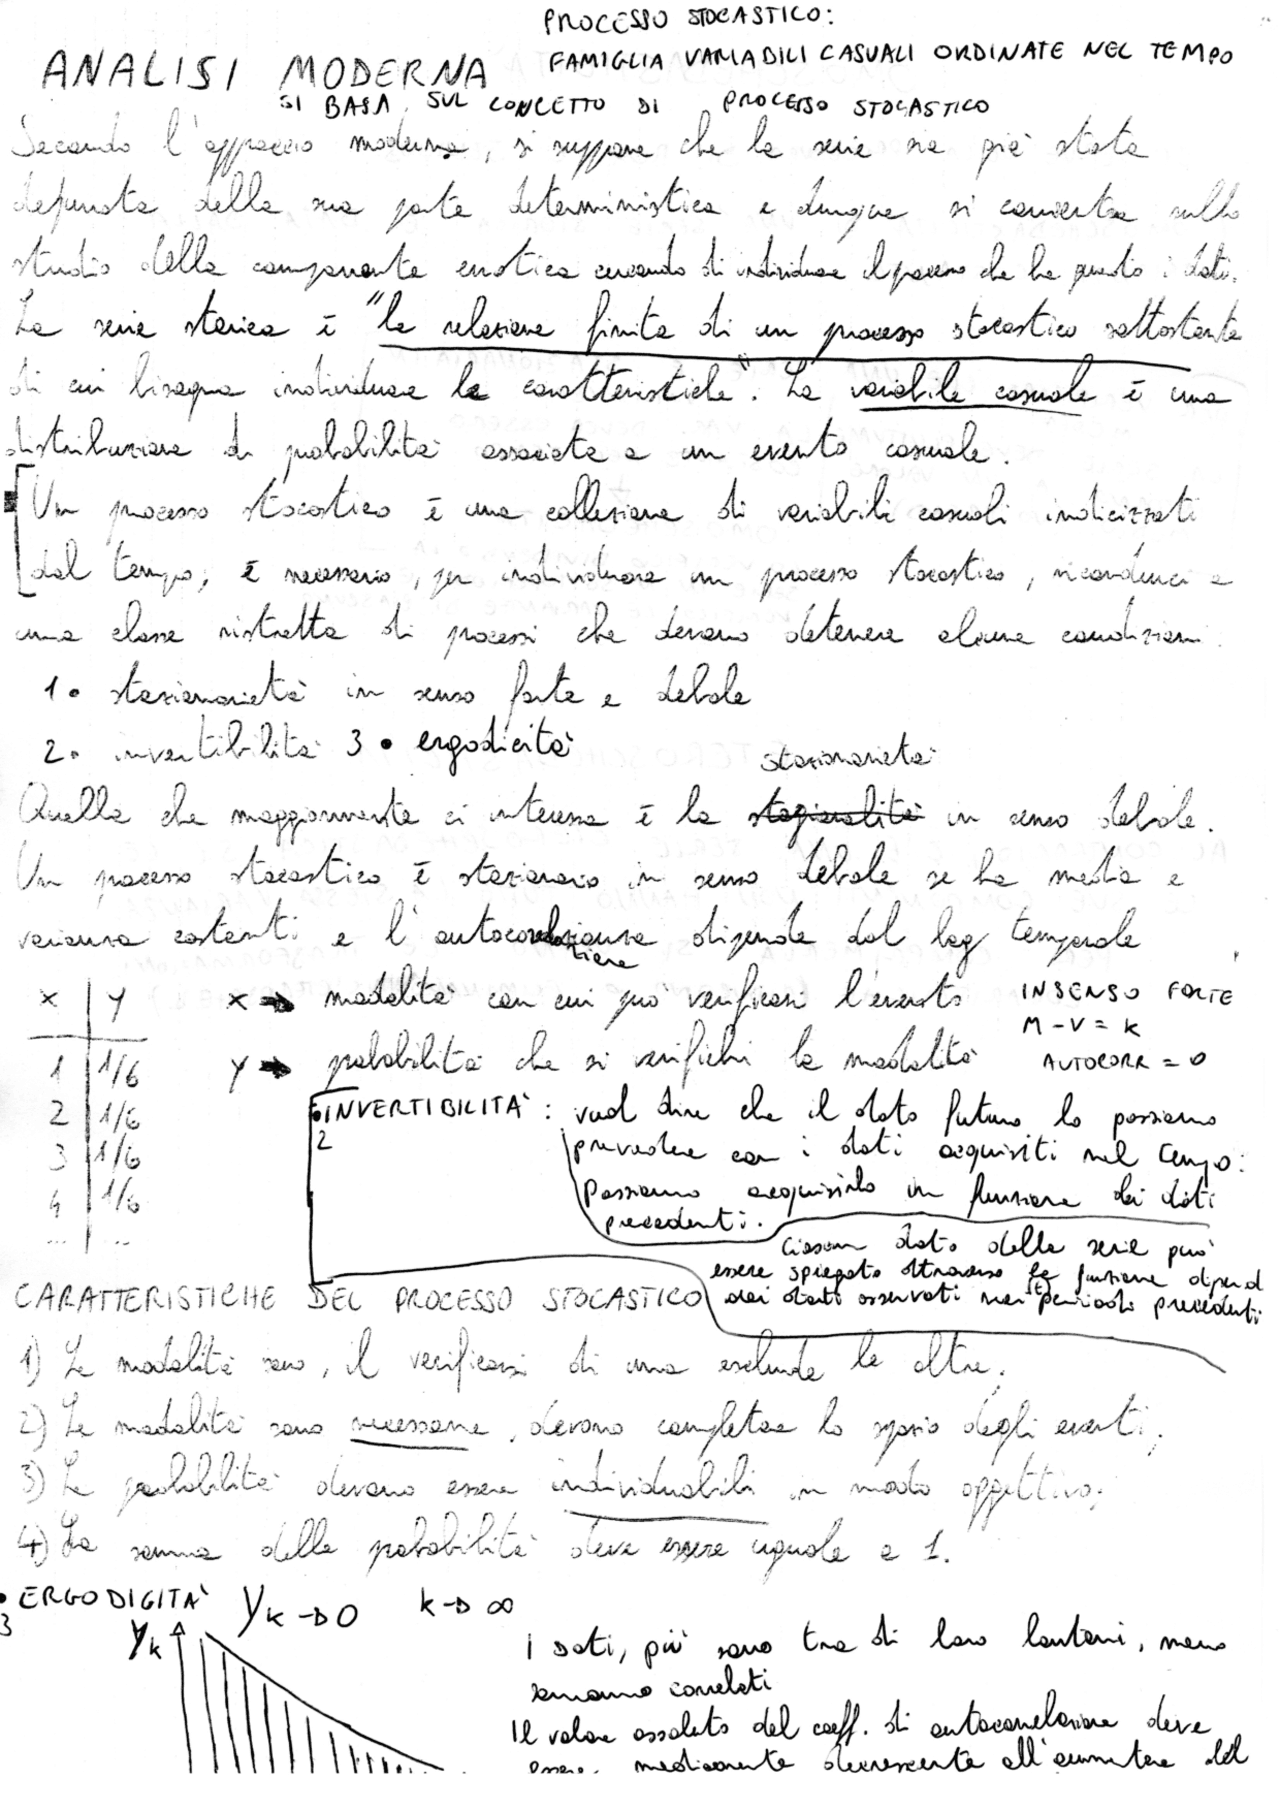 PROCESSO STOCASTICO:
FAMIGLIA VARIABILI CASUALI ORDINATE NEL TEMPO
ANALISI MODERNA
SI BASA SUL CONCETTO DI PROCESSO STOCASTICO
Secondo l'approccio moderno, si suppone che la serie sia già stata
depurata della sua parte deterministica e dunque si concentra sullo
studio della componente erratica cercando di individuare il processo che ha i dati.
La serie storica è "la relazione finita di un processo stocastico sottostante
di cui bisogna individuare le caratteristiche". La variabile casuale è una
distribuzione di probabilità associata a un evento casuale.
Un processo stocastico è una collezione di variabili casuali indicizzati
dal tempo; è necessario, per individuare un processo stocastico, ricondurci a
una classe ristretta di processi che devono detenere alcune condizioni:
1. stazionarietà in senso forte e debole
2. invertibilità 3 • ergodicità
stazionarietà
Quella che maggiormente ci interessa è la stagionalità in senso debole.
Un processo stocastico è stazionario in senso debole se ha media e
varianza costanti e l'autocorrelazione dipende dal lag temporale
x | y x → modalità con cui può verificarsi l'evento
IN SENSO FORTE
M - V = K
1 | 1/6 y → probabilità che si verifichi la modalità
AUTOCORR = 0
2 | 1/6
3 | 1/6
4 | 1/6
... ...
• INVERTIBILITÀ: vuol dire che il dato futuro lo possiamo
2
prevedere con i dati acquisiti nel tempo:
Possiamo acquisirlo in funzione dei dati
precedenti.
Ciascun dato della serie può
essere spiegato attraverso la funzione dipend
dai dati osservati nei periodi precedenti
CARATTERISTICHE DEL PROCESSO STOCASTICO
1) Le modalità sono, il verificarsi di una esclude le altre;
2) Le modalità sono necessarie, devono completare lo spazio degli eventi;
3) Le probabilità devono essere individuabili in modo oggettivo;
4) La somma delle probabilità deve essere uguale a 1.
• ERGODICITÀ Yk → 0 k → ∞
3
Yk
I dati, più sono tra di loro lontani, meno
saranno correlati
Il valore assoluto del coeff. di autocorrelazione deve
essere mediamente decrescente all'aumentare del